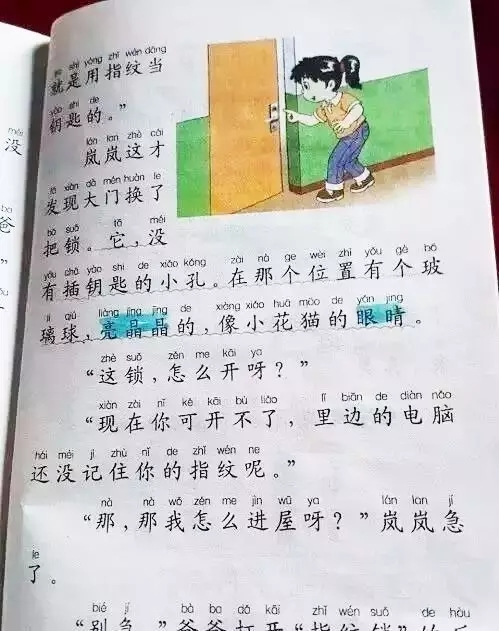 jiù shì yòng zhǐ wén dāng
就是用指纹当
yào shi de
钥匙的。”
lán lan zhè cái
岚岚这才
fā xiàn dà mén huàn le
发现大门换了
bǎ suǒ tā méi
把锁。它，没
yǒu chā yào shi de xiǎo kǒng zài nà ge wèi zhì yǒu gè bō
有插钥匙的小孔。在那个位置有个玻
li qiú liàng jīng jīng de xiàng xiǎo huā māo de yǎn jing
璃球，亮晶晶的，像小花猫的眼睛。
zhè suǒ zěn me kāi ya
“这锁，怎么开呀？”
xiàn zài nǐ kě kāi bù liǎo lǐ biān de diàn nǎo
“现在你可开不了，里边的电脑
hái méi jì zhù nǐ de zhǐ wén ne
还没记住你的指纹呢。”
nà nà wǒ zěn me jìn wū ya lán lan jí
“那，那我怎么进屋呀？”岚岚急
le
了。
bié jí bà ba dǎ kāi zhǐ wén suǒ de hòu
“别急。”爸爸打开“指纹锁”的后
méi
没
爸